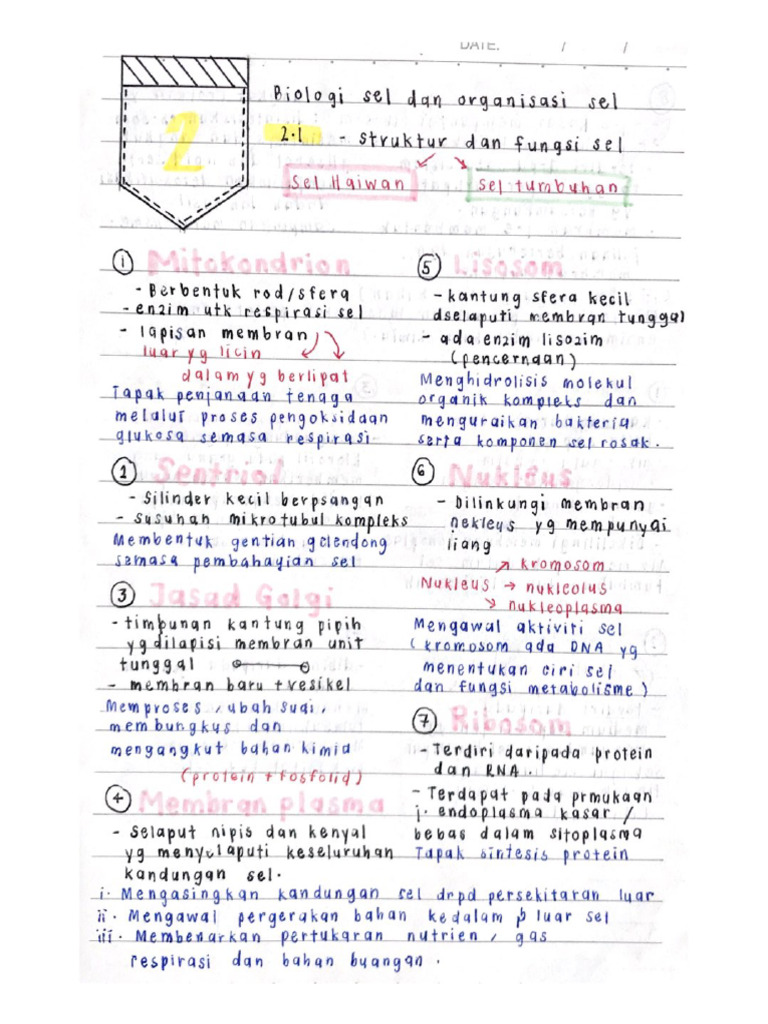 DATE: / /
2
Biologi sel dan organisasi sel
2.1 - struktur dan fungsi sel
Sel Haiwan
Sel tumbuhan
① Mitokondrion
- Berbentuk rod/sfera
- enzim utk respirasi sel
- lapisan membran
luar yg licin
dalam yg berlipat
Tapak penjanaan tenaga
melalui proses pengoksidaan
glukosa semasa respirasi
② Sentriol
- Silinder kecil berpsangan
- Susunan mikrotubul kompleks
Membentuk gentian gelendong
semasa pembahagian sel
③ Jasad Golgi
- timbunan kantung pipih
yg dilapisi membran unit
tunggal
- membran baru + vesikel
Memproses, ubah suai,
membungkus dan
mengangkut bahan kimia
(protein + fosfolid)
④ Membran plasma
- Selaput nipis dan kenyal
yg menyelaputi keseluruhan
kandungan sel.
i. Mengasingkan kandungan sel drpd persekitaran luar
ii. Mengawal pergerakan bahan kedalam & luar sel
iii. Membenarkan pertukaran nutrien, gas
respirasi dan bahan buangan.
⑤ Lisosom
- kantung sfera kecil
dselaputi membran tunggal
- ada enzim lisozim
(pencernaan)
Menghidrolisis molekul
organik kompleks dan
menguraikan bakteria
serta komponen sel rosak.
⑥ Nukleus
- Dilinkungi membran
nekleus yg mempunyai
liang
Nukleus → kromosom
→ nukleolus
→ nukleoplasma
Mengawal aktiviti sel
(kromosom ada DNA yg
menentukan ciri sel
dan fungsi metabolisme)
⑦ Ribosom
- Terdiri daripada protein
dan RNA.
- Terdapat pada prmukaan
j. endoplasma kasar /
bebas dalam sitoplasma
Tapak sintesis protein